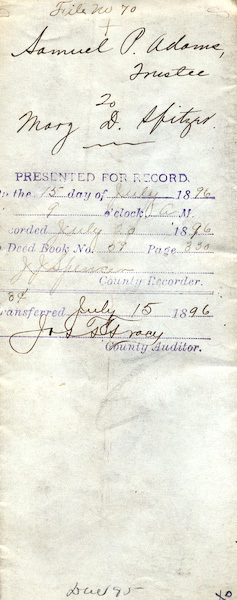 File No 70
Samuel P. Adams,
Trustee
To
Mary D. Spitzer.
PRESENTED FOR RECORD.
the 15 day of July 1896
9 o'clock A M.
corded July 20 1896
Deed Book No. 57 Page 320
County Recorder.
84
ransferred July 15 1896
Jos T Gracy
County Auditor.